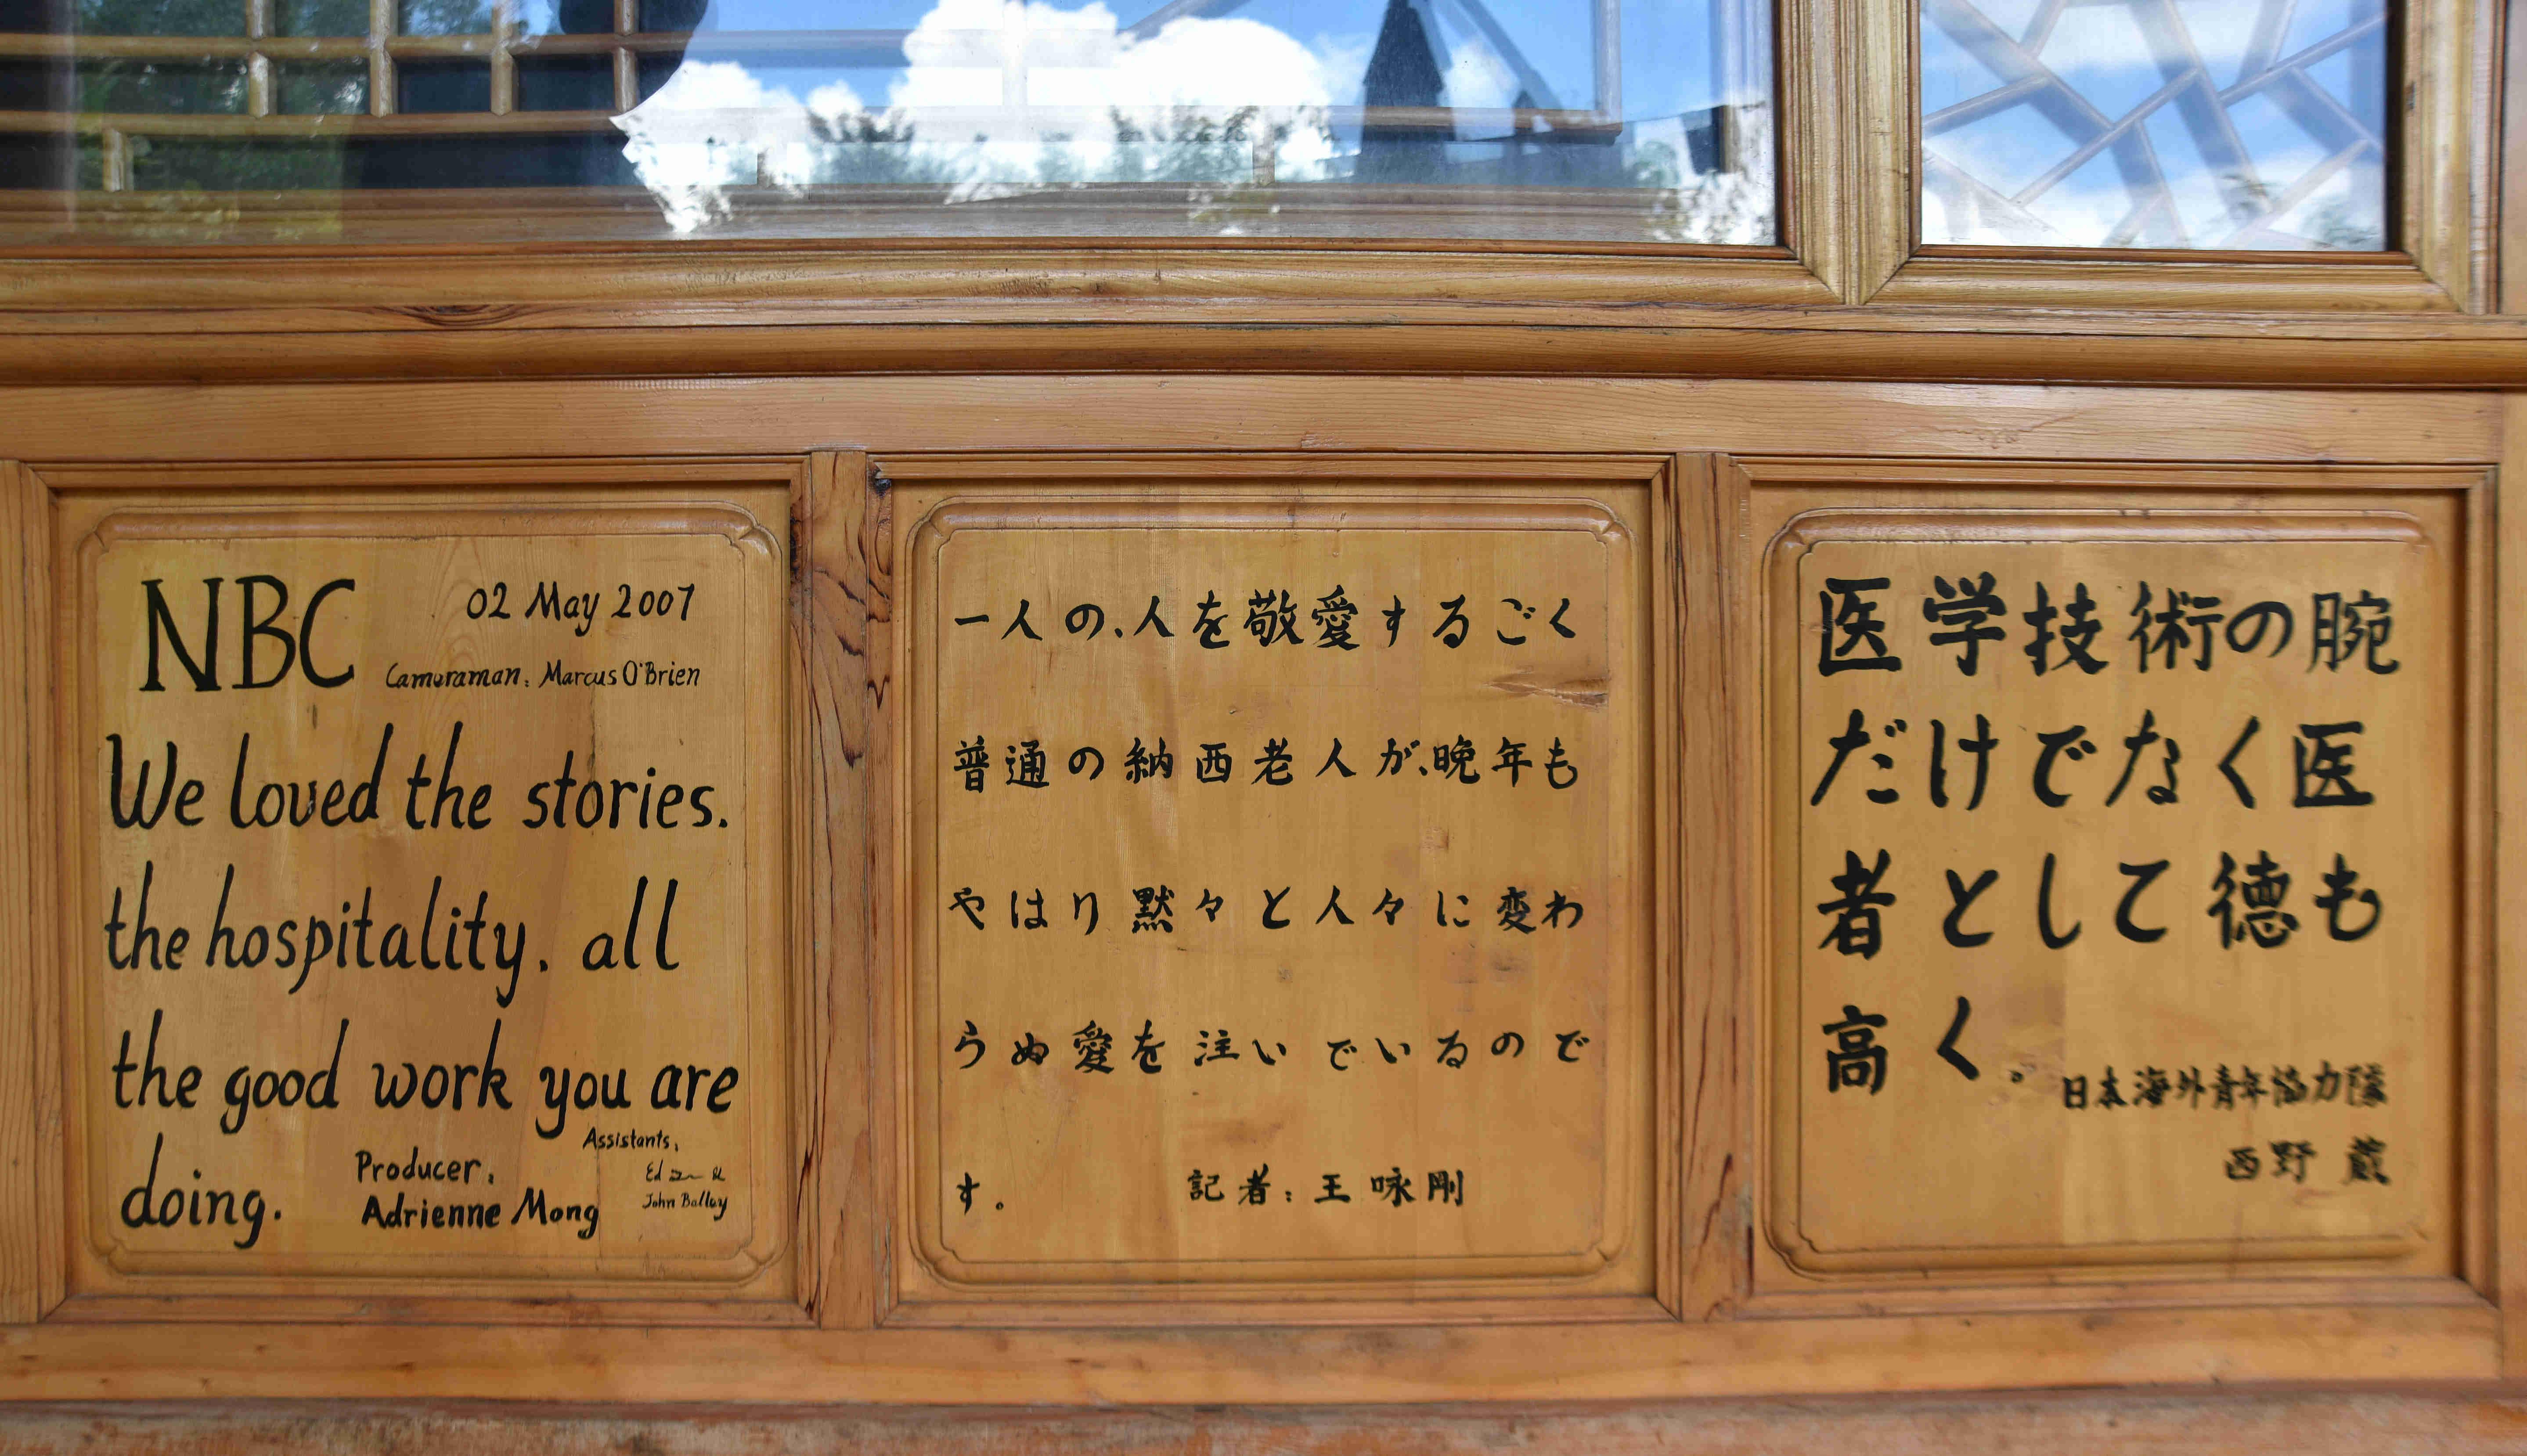 NBC 02 May 2007
Cameraman: Marcus O'Brien
We loved the stories.
the hospitality. all
the good work you are
doing.
Producer:
Adrienne Mong
Assistants:
Ed
John Ballay
一人の、人を敬愛するごく
普通の納西老人が、晩年も
やはり黙々と人々に変わ
らぬ愛を注いでいるので
す。 記者:王咏剛
医学技術の腕
だけでなく医
者として徳も
高く。
日本海外青年協力隊
西野